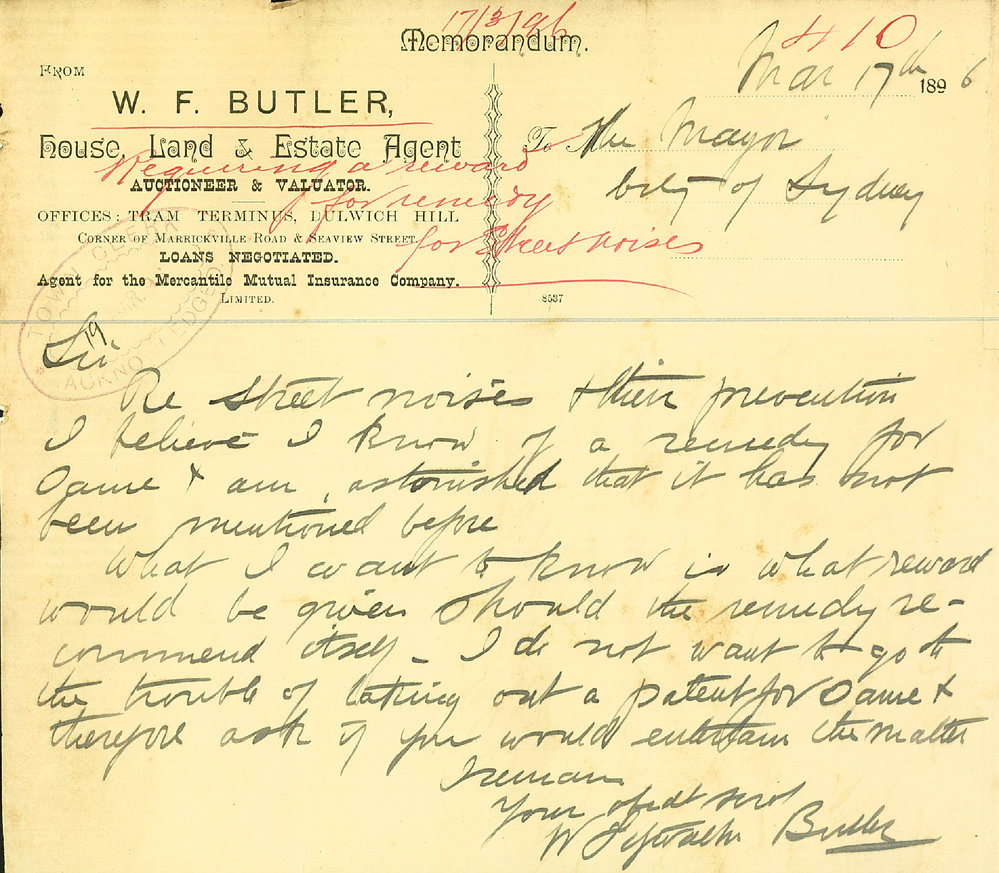 17/3/96
Memorandum.
410
Mar 17th 1896
FROM
W. F. BUTLER,
House, Land & Estate Agent
AUCTIONEER & VALUATOR.
OFFICES: TRAM TERMINUS, DULWICH HILL
CORNER OF MARRICKVILLE ROAD & SEAVIEW STREET.
LOANS NEGOTIATED.
Agent for the Mercantile Mutual Insurance Company.
LIMITED.
8537
To The Mayor
City of Sydney
Requiring a reward
for remedy
for Street noises
TOWN CLERK
19
ACKNOWLEDGED
Sir
Re street noises & their prevention
I believe I know of a remedy for
same & am, astonished that it has not
been mentioned before
What I want to know is what reward
would be given should the remedy re-
commend itself - I do not want to go to
the trouble of taking out a patent for same &
therefore ask if you would entertain the matter
I remain
Your obedt servt
W Butler